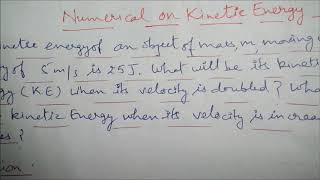 Numerical on Kinetic Energy
inetic energy of an object of mass, m, moving
y of 5 m/s is 25J. What will be its kineti
gy (K.E) when its velocity is doubled? Wha
kinetic Energy when its velocity is increa
es?
ion: